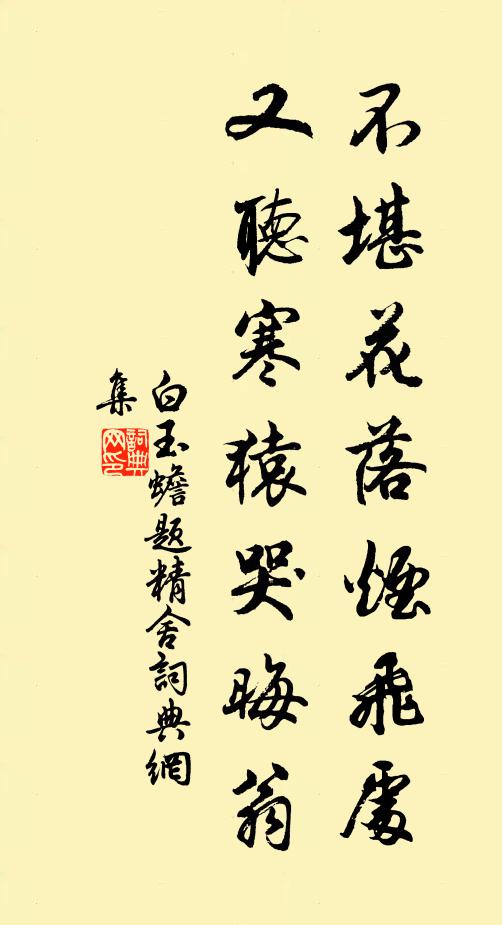 不堪花落煙飛處
又聽寒猿哭晦翁
白玉蟾題精舍詞典網
集
詞典
网印